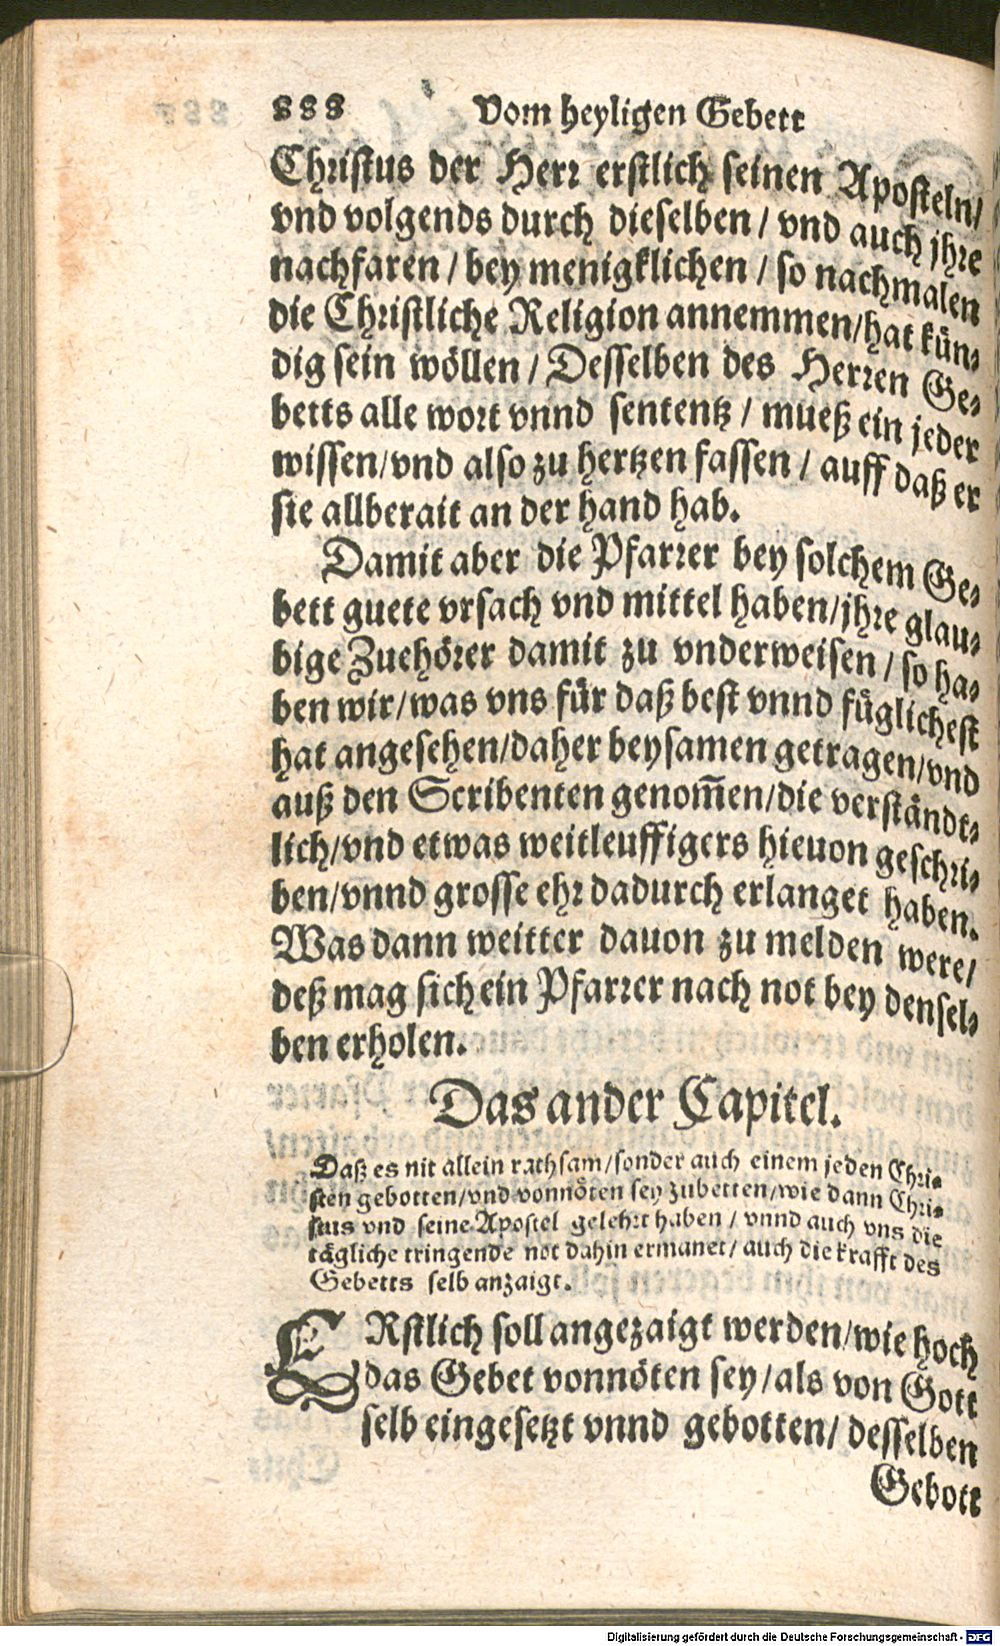 888 Vom heyligen Gebett
Christus der Herr erstlich seinen Aposteln/
vnd volgends durch dieselben / vnd auch jhre
nachfaren / bey menigklichen / so nachmalen
die Christliche Religion annemmen/hat kün-
dig sein wöllen / Desselben des Herren Ge-
betts alle wort vnnd sententz / mueß ein jeder
wissen/vnd also zu hertzen fassen / auff daß er
sie allberait an der hand hab.
Damit aber die Pfarrer bey solchem Ge-
bett guete vrsach vnd mittel haben/jhre glau-
bige Zuehörer damit zu vnderweisen / so ha-
ben wir/was vns für daß best vnnd füglichest
hat angesehen/daher beysamen getragen/vnd
auß den Scribenten genom̄en/die verständt-
lich/vnd etwas weitleuffigers hieuon geschri-
ben/vnnd grosse ehr dadurch erlanget haben.
Was dann weitter dauon zu melden were/
deß mag sich ein Pfarrer nach not bey densel-
ben erholen.
Das ander Capitel.
Daß es nit allein rathsam/sonder auch einem jeden Chri-
sten gebotten/vnd vonnöten sey zubetten/wie dann Chri-
stus vnd seine Apostel gelehrt haben / vnnd auch vns die
tägliche tringende not dahin ermanet/ auch die krafft des
Gebetts selb anzaigt.
ERstlich soll angezaigt werden/wie hoch
das Gebet vonnöten sey/als von Gott
selb eingesetzt vnnd gebotten/ desselben
Gebott
Digitalisierung gefördert durch die Deutsche Forschungsgemeinschaft - DFG